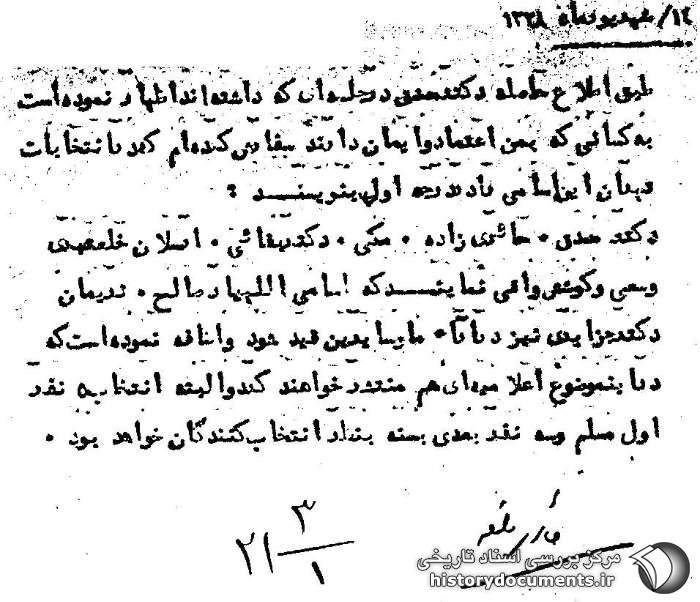 ۱۴/ شهریورماه ۱۳۲۸
طبق اطلاع حاصله دکتر مصدق در جلسه‌ای که داشته‌اند اظهار نموده است
به کسانی که بمن اعتماد و ایمان دارند سفارش کرده‌ام که در انتخابات
تهران این اسامی را در درجه اول بنویسند :
دکتر مصدق . حائری زاده . مکی . دکتر بقائی . ارسلان خلعتبری
وسعی و کوشش وافی نمایند که اسامی اللهیار صالح . نریمان
دکتر جزایری نیز در آراء ما و سایرین قید شود و اضافه نموده است که
در این موضوع اعلامیه‌ای هم منتشر خواهند کرد و البته انتخاب نفر
اول مسلم وسه نفر بعدی بسته بنظر انتخاب کنندگان خواهد بود .
۳
۲۱
۱
مرکز بررسی اسناد تاریخی
historydocuments.ir